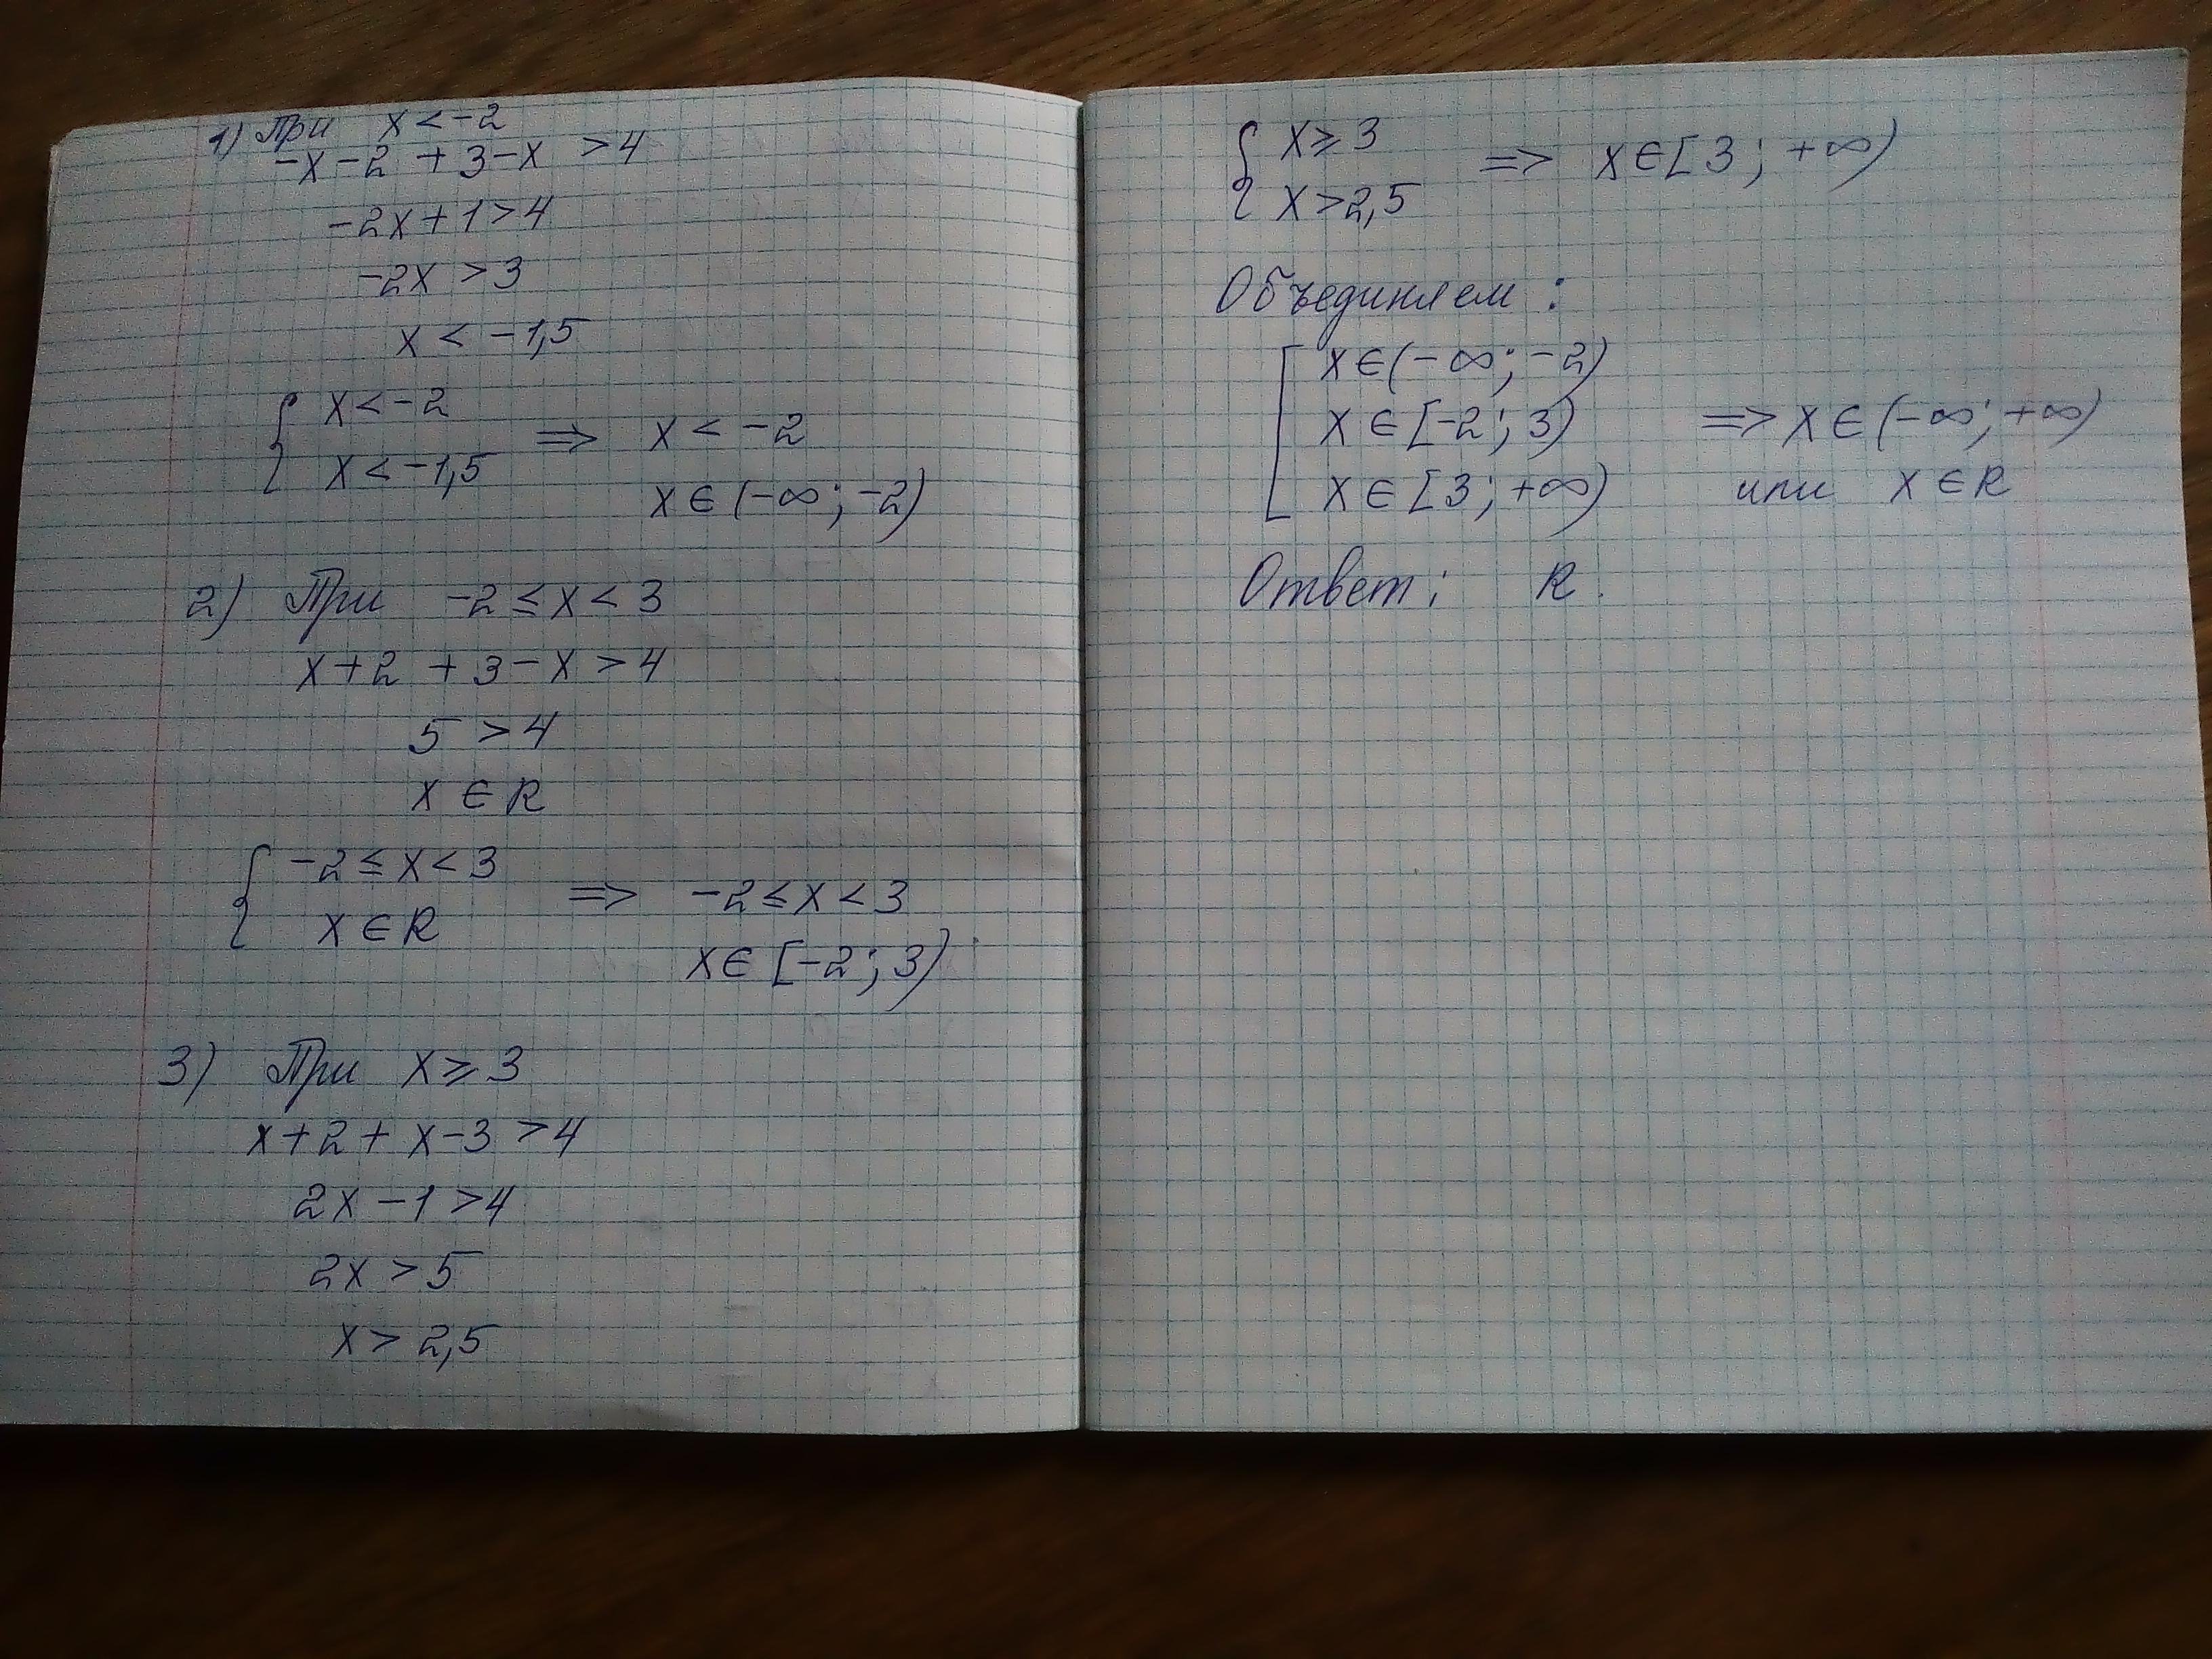 1) При x < -2
-x - 2 + 3 - x > 4
-2x + 1 > 4
-2x > 3
x < -1,5
{ x < -2
x < -1,5 => x < -2
x ∈ (-∞; -2)
2) При -2 ≤ x < 3
x + 2 + 3 - x > 4
5 > 4
x ∈ R
{ -2 ≤ x < 3
x ∈ R => -2 ≤ x < 3
x ∈ [-2; 3)
3) При x ≥ 3
x + 2 + x - 3 > 4
2x - 1 > 4
2x > 5
x > 2,5
{ x ≥ 3
x > 2,5 => x ∈ [3; +∞)
Объединяем:
[ x ∈ (-∞; -2)
x ∈ [-2; 3) => x ∈ (-∞; +∞)
x ∈ [3; +∞) или x ∈ R
Ответ: R.